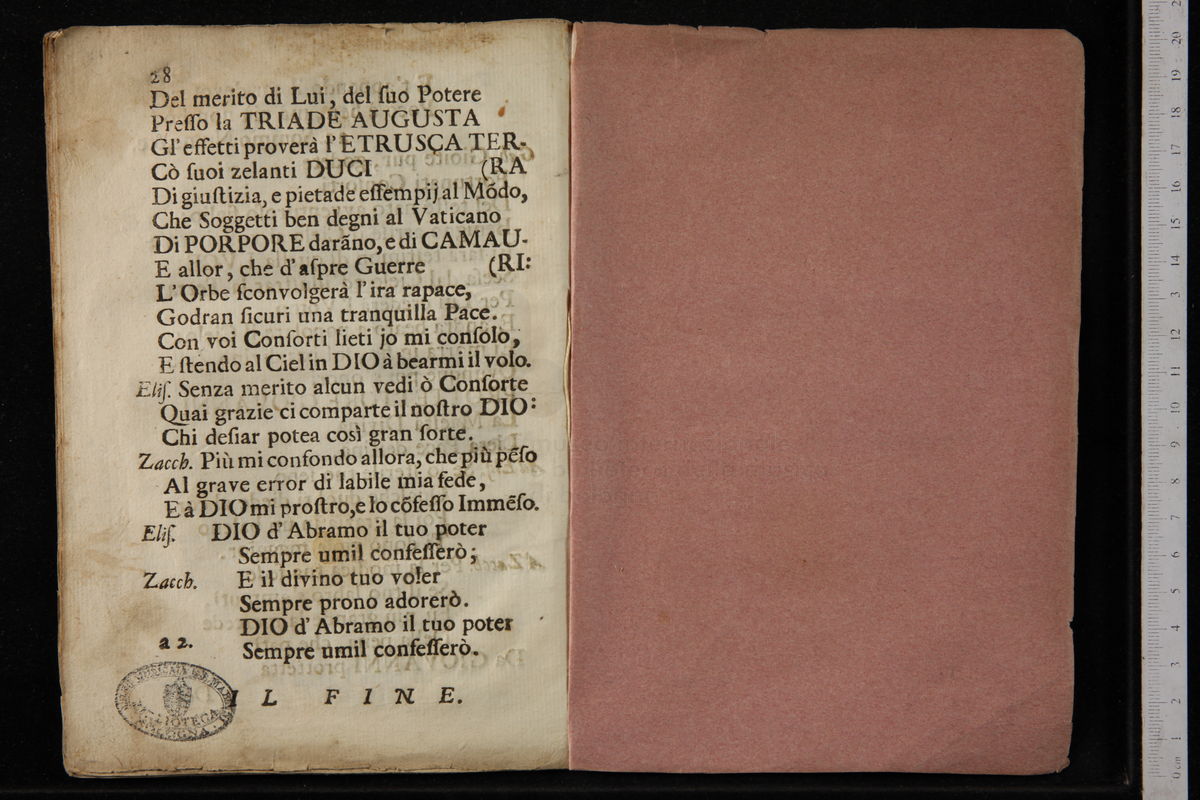 28
Del merito di Lui, del ſuo Potere
Preſſo la TRIADE AUGUSTA
Gl'effetti proverà l'ETRUSCA TER-
Cò ſuoi zelanti DUCI (RA
Di giuſtizia, e pietade eſſempij al Mõdo,
Che Soggetti ben degni al Vaticano
Di PORPORE darãno, e di CAMAU-
E allor, che d'aſpre Guerre (RI:
L'Orbe ſconvolgerà l'ira rapace,
Godran ſicuri una tranquilla Pace.
Con voi Conſorti lieti jo mi conſolo,
E ſtendo al Ciel in DIO à bearmi il volo.
Eliſ. Senza merito alcun vedi ò Conſorte
Quai grazie ci comparte il noſtro DIO:
Chi deſiar potea così gran ſorte.
Zacch. Più mi confondo allora, che più pẽſo
Al grave error di labile mia fede,
E à DIO mi proſtro, e lo cõfeſſo Immẽſo.
Eliſ. DIO d'Abramo il tuo poter
Sempre umil confeſſerò;
Zacch. E il divino tuo voler
Sempre prono adorerò.
DIO d'Abramo il tuo poter
a 2. Sempre umil confeſſerò.
IL FINE.
BIBLIOTECA
BOLOGNA
0 cm 1 2 3 4 5 6 7 8 9 10 11 12 13 14 15 16 17 18 19 20 21